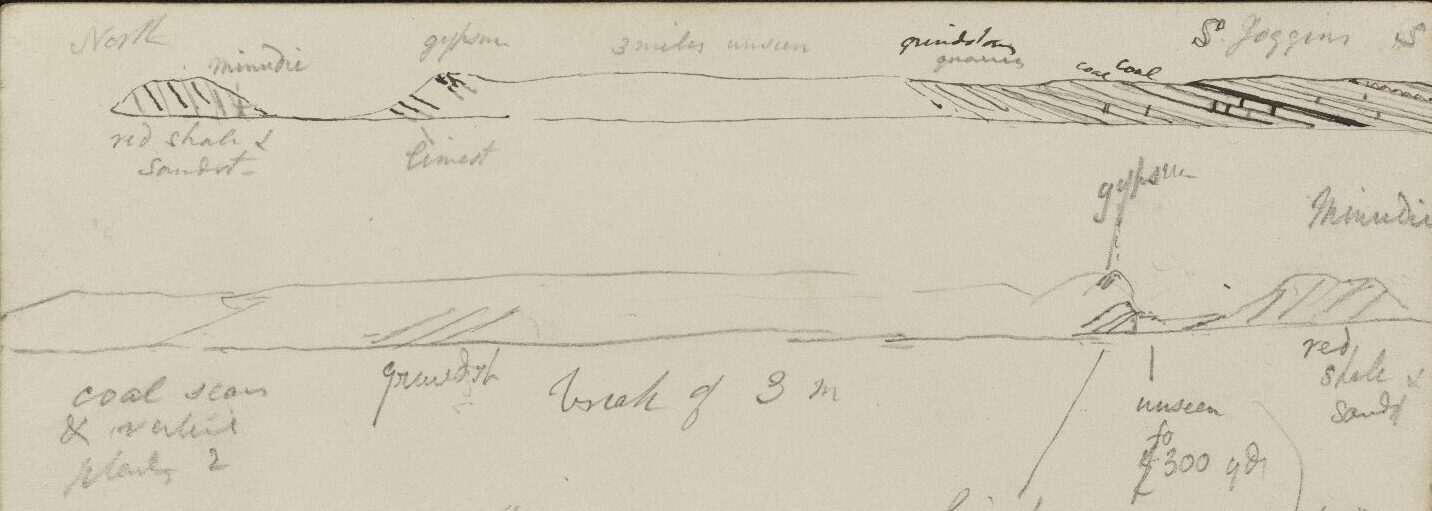 North
minudie
gypsum
3 miles unseen
grindstone
quarries
coal coal
S. Joggins S
red shale &
Sandst-
limest
gypsum
Minudie
coal seam
& vertical
plants 2
grindst
break of 3 m
unseen
300 yds
red
shale &
sandst